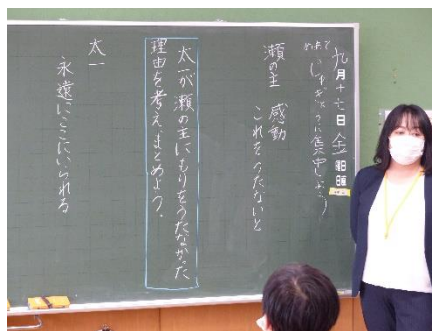 九月十七日 金曜
めあて じゅぎょうに集中しよう
瀬の主 感動 これをうたないと
太一が瀬の主にもりをうたなかった
理由を考え、まとめよう。
太一
永遠にここにいられる